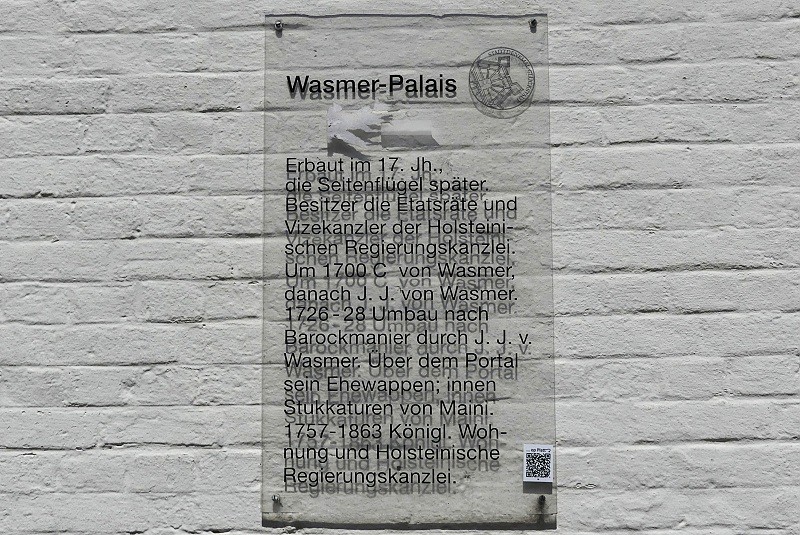 Wasmer-Palais
Erbaut im 17. Jh.,
die Seitenflügel später.
Besitzer die Etatsräte und
Vizekanzler der Holsteini-
schen Regierungskanzlei.
Um 1700 C von Wasmer,
danach J. J. von Wasmer.
1726-28 Umbau nach
Barockmanier durch J. J. v.
Wasmer. Über dem Portal
sein Ehewappen; innen
Stukkaturen von Maini.
1757-1863 Königl. Woh-
nung und Holsteinische
Regierungskanzlei.